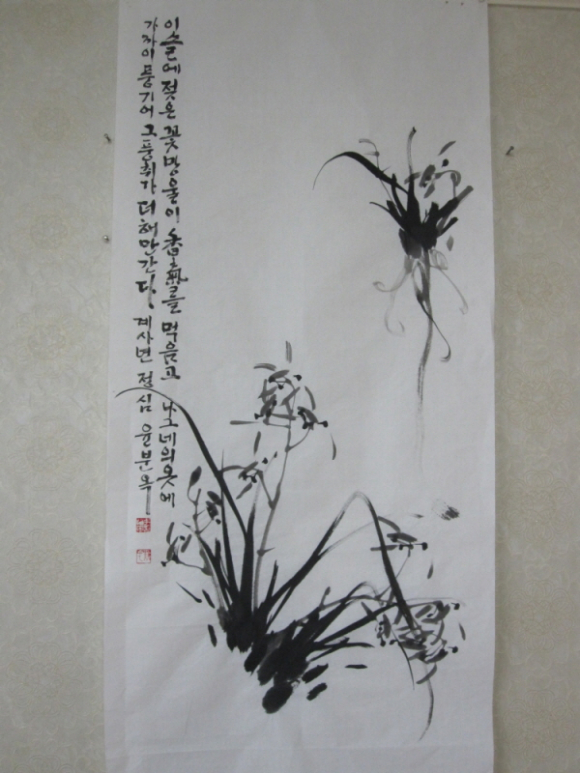 이슬에 젖은 꽃망울이 香氣를 먹음고 나그네의 옷에
풍기어 그 풍취가 더해만 간다. 계사년 정심 윤분옥